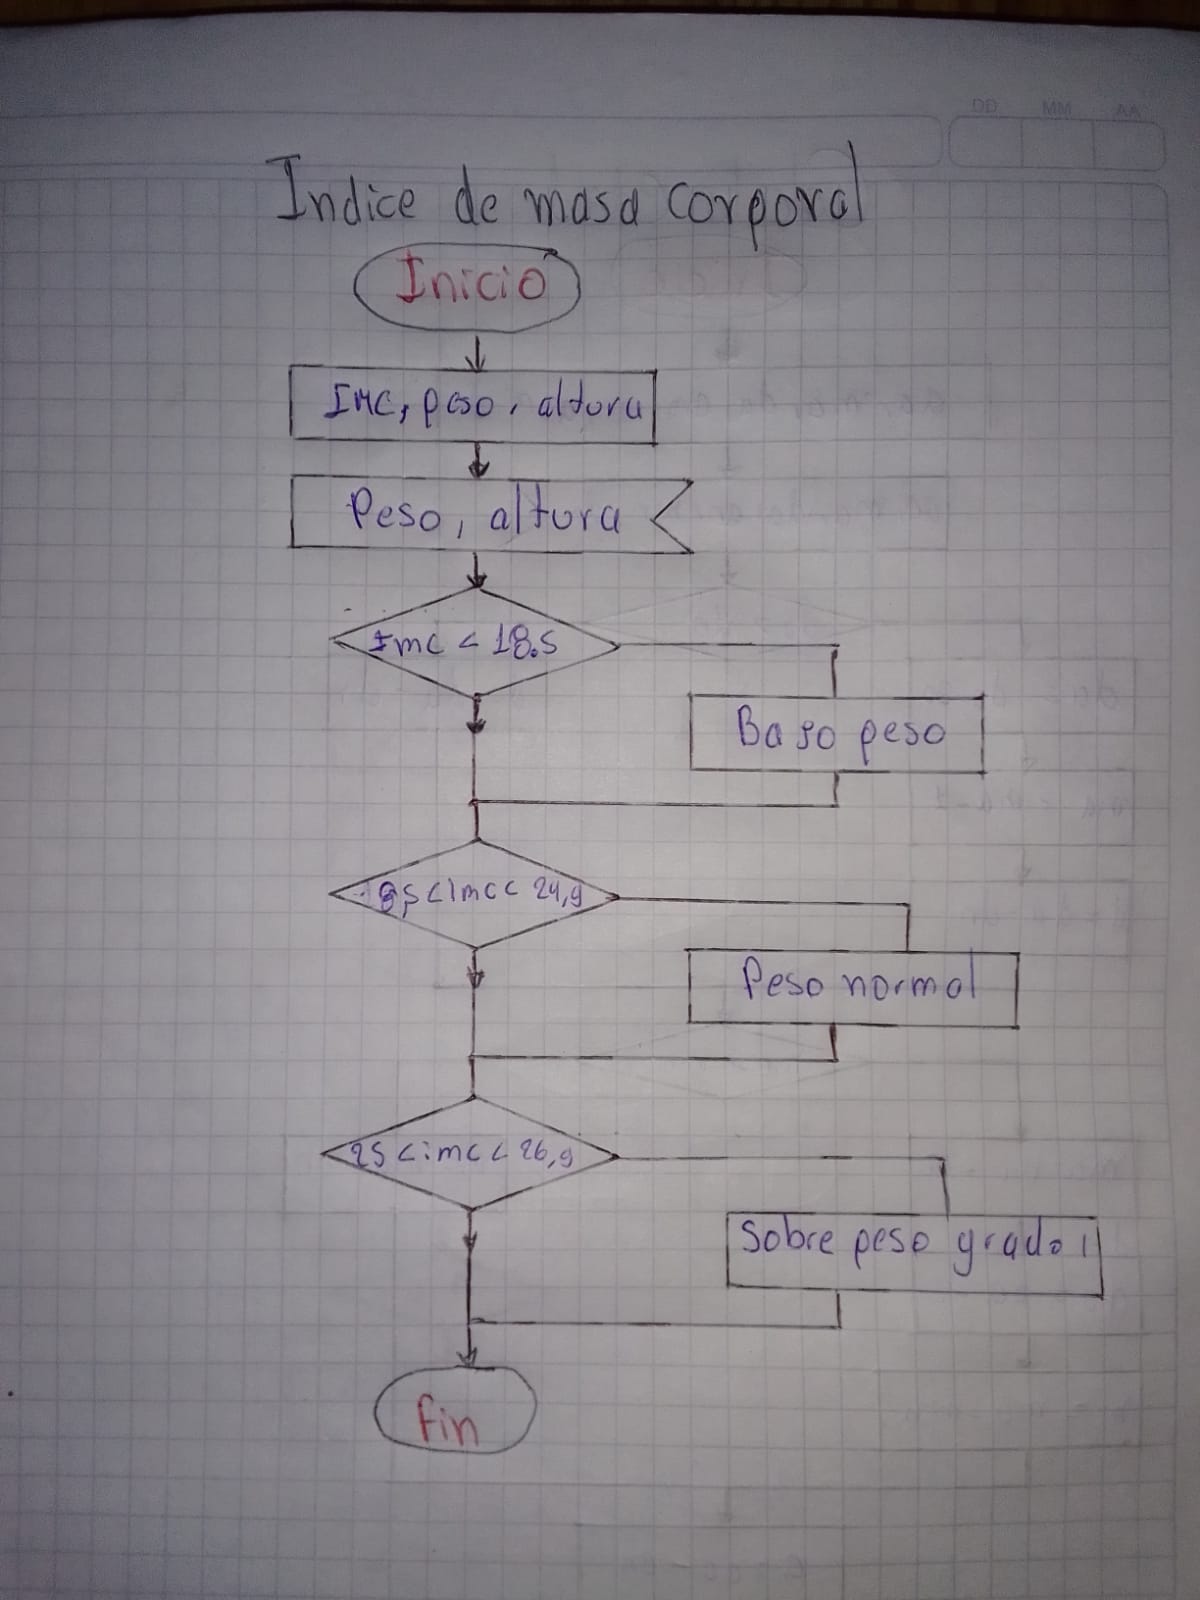 DD MM AA
Indice de masa corporal
Inicio
Imc, peso, altura
Peso, altura
Imc < 18.5
Bajo peso
<imc< 24,9
Peso normal
25 <imc< 26,9
Sobre peso grado 1
Fin